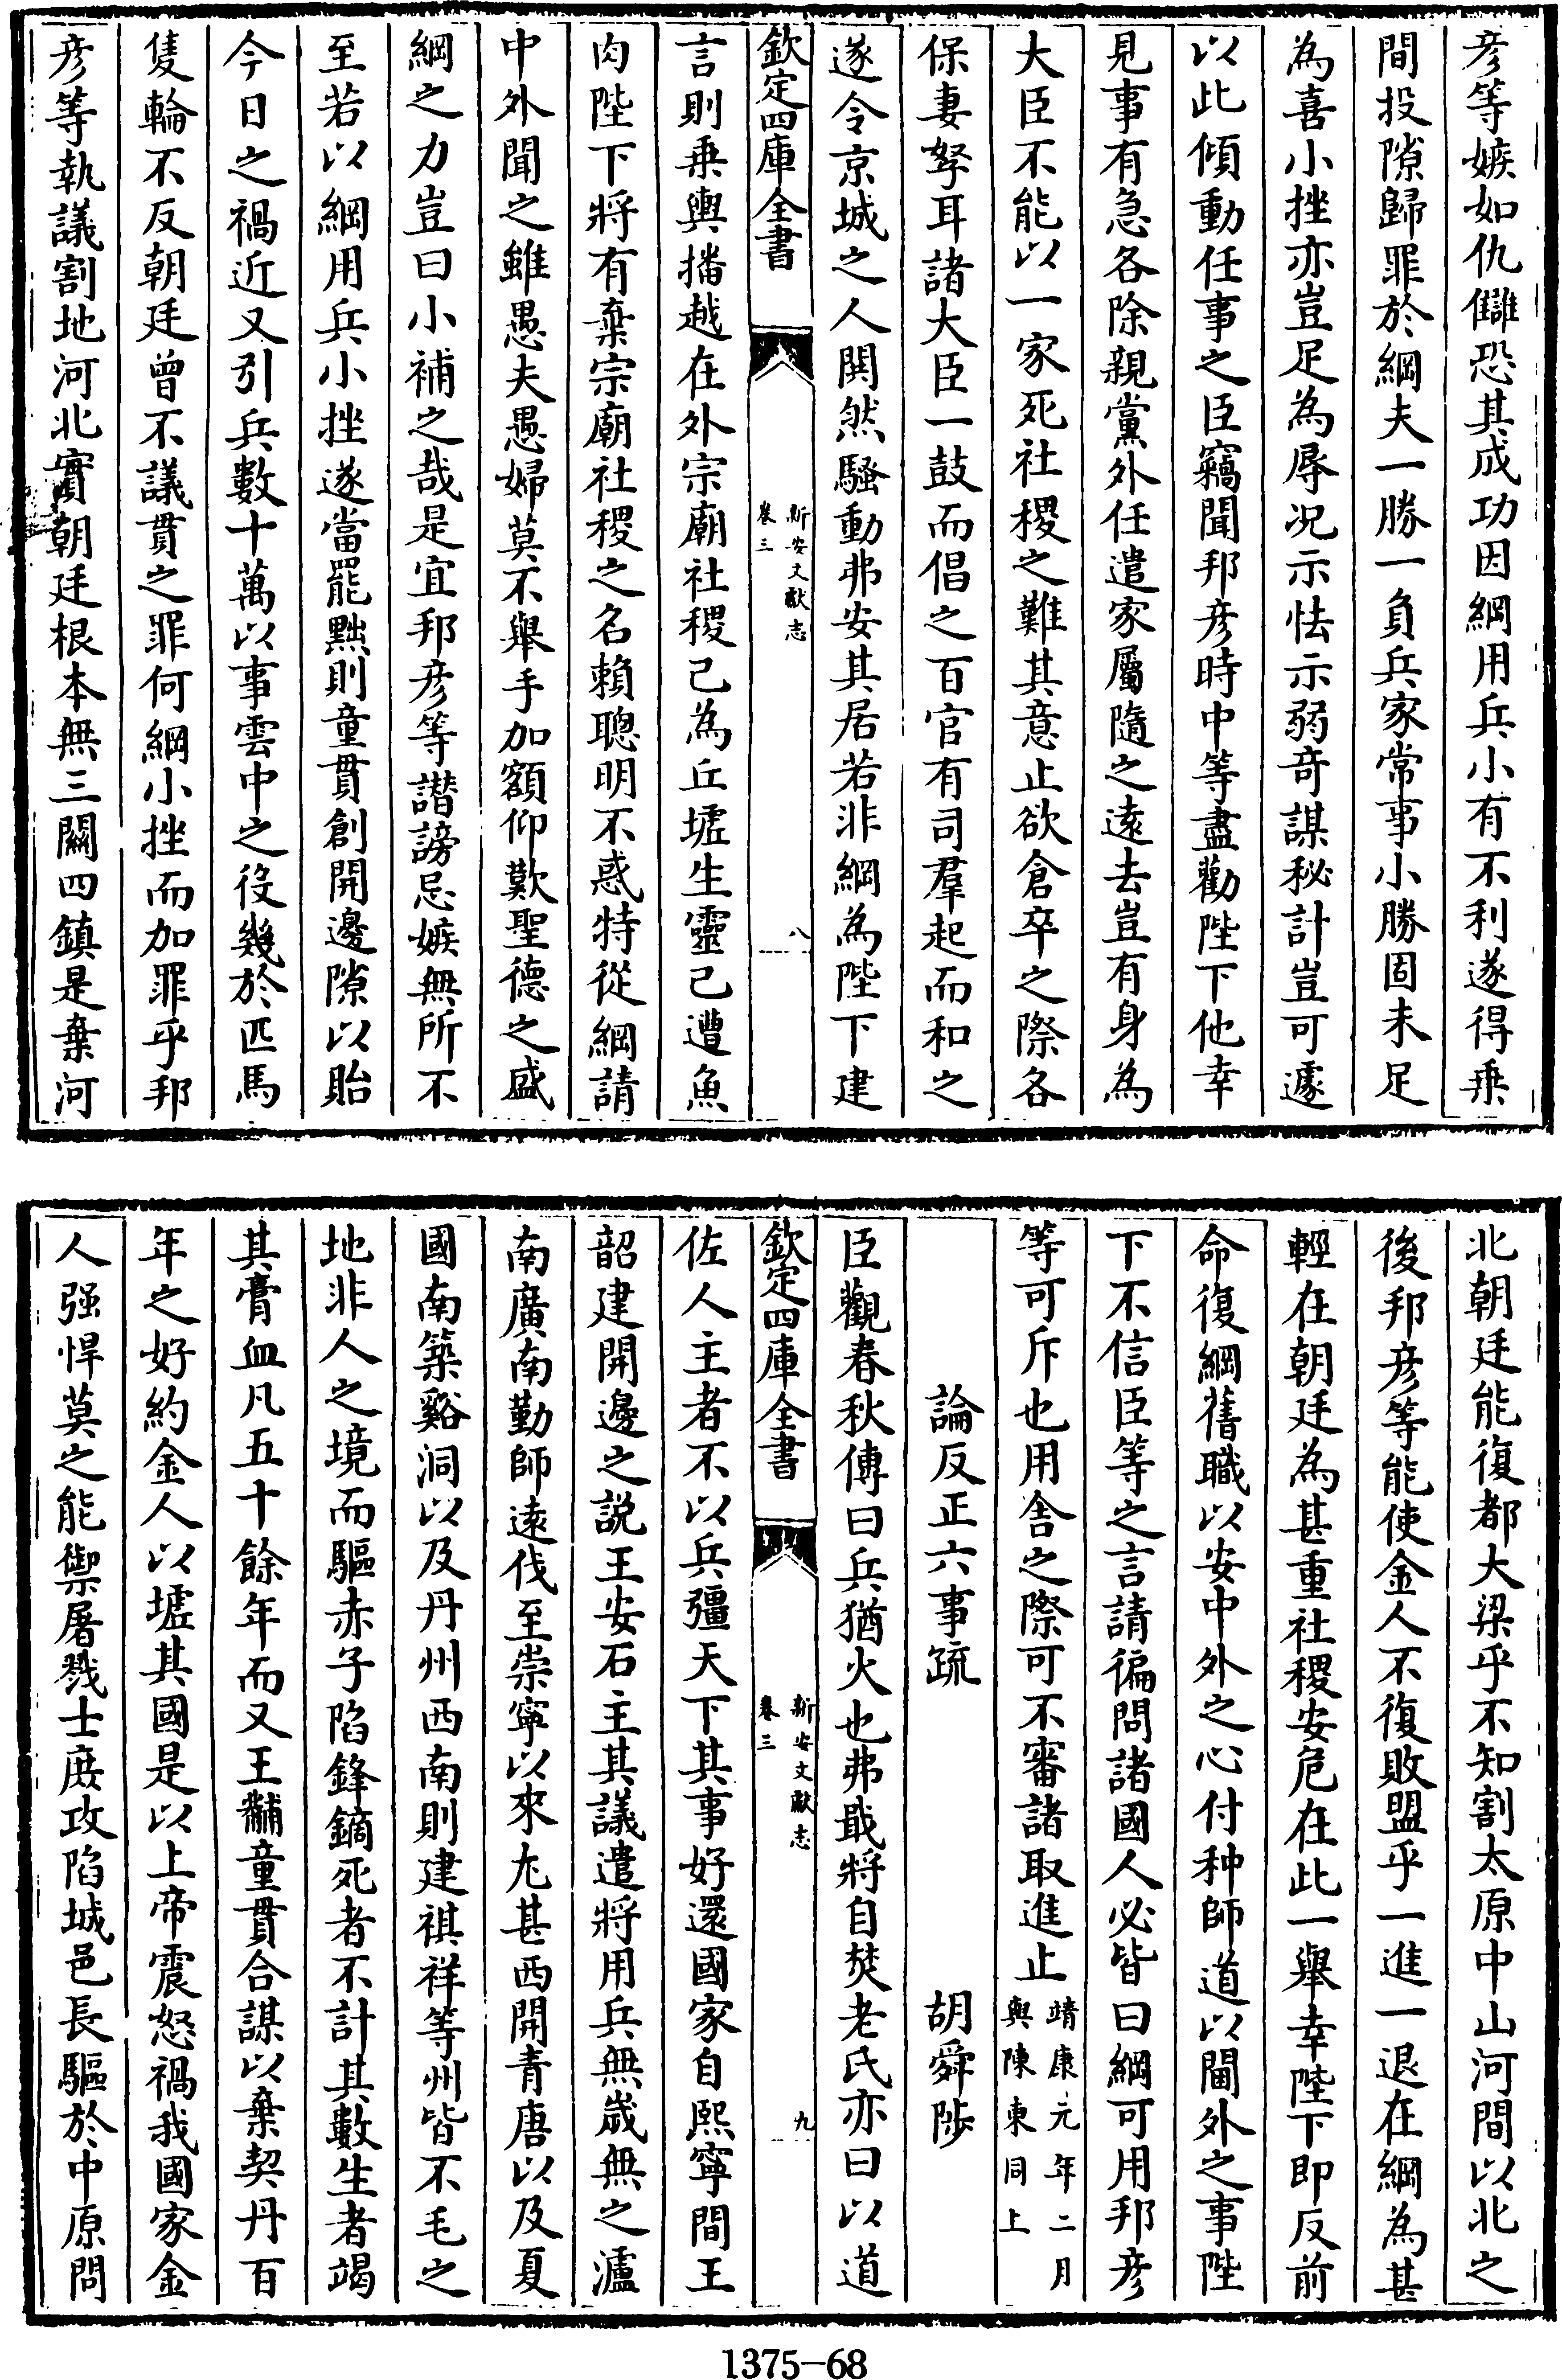 彦等嫉如仇讎恐其成功因綱用兵小有不利遂得乗
間投隙歸罪於綱夫一勝一負兵家常事小勝固未足
為喜小挫亦豈足為辱况示怯示弱奇謀秘計豈可遽
以此傾動任事之臣竊聞邦彦時中等盡勸陛下他幸
見事有急各除親黨外任遣家屬隨之遠去豈有身為
大臣不能以一家死社稷之難其意止欲倉卒之際各
保妻孥耳諸大臣一鼓而倡之百官有司羣起而和之
遂令京城之人閧然騷動弗安其居若非綱為陛下建
欽定四庫全書
新安文獻志
卷三
八
言則乗輿播越在外宗廟社稷已為丘墟生靈已遭魚
肉陛下將有棄宗廟社稷之名賴聰明不惑特從綱請
中外聞之雖愚夫愚婦莫不舉手加額仰歎聖德之盛
綱之力豈曰小補之哉是宜邦彦等譖謗忌嫉無所不
至若以綱用兵小挫遂當罷黜則童貫創開邊隙以貽
今日之禍近又引兵數十萬以事雲中之役幾於匹馬
隻輪不反朝廷曾不議貫之罪何綱小挫而加罪乎邦
彦等執議割地河北實朝廷根本無三關四鎮是棄河
北朝廷能復都大梁乎不知割太原中山河間以北之
後邦彦等能使金人不復敗盟乎一進一退在綱為甚
輕在朝廷為甚重社稷安危在此一舉幸陛下即反前
命復綱舊職以安中外之心付种師道以閫外之事陛
下不信臣等之言請徧問諸國人必皆曰綱可用邦彦
等可斥也用舍之際可不審諸取進止靖康元年二月
與陳東同上
論反正六事疏 胡舜陟
臣觀春秋傳曰兵猶火也弗戢將自焚老氏亦曰以道
欽定四庫全書
新安文獻志
卷三
九
佐人主者不以兵彊天下其事好還國家自熙寧間王
韶建開邊之説王安石主其議遣將用兵無歲無之瀘
南廣南勤師遠伐至崇寧以來尤甚西開青唐以及夏
國南築谿洞以及丹州西南則建祺祥等州皆不毛之
地非人之境而驅赤子陷鋒鏑死者不計其數生者竭
其膏血凡五十餘年而又王黼童貫合謀以棄契丹百
年之好約金人以墟其國是以上帝震怒禍我國家金
人强悍莫之能禦屠戮士庶攻陷城邑長驅於中原問
1375-68